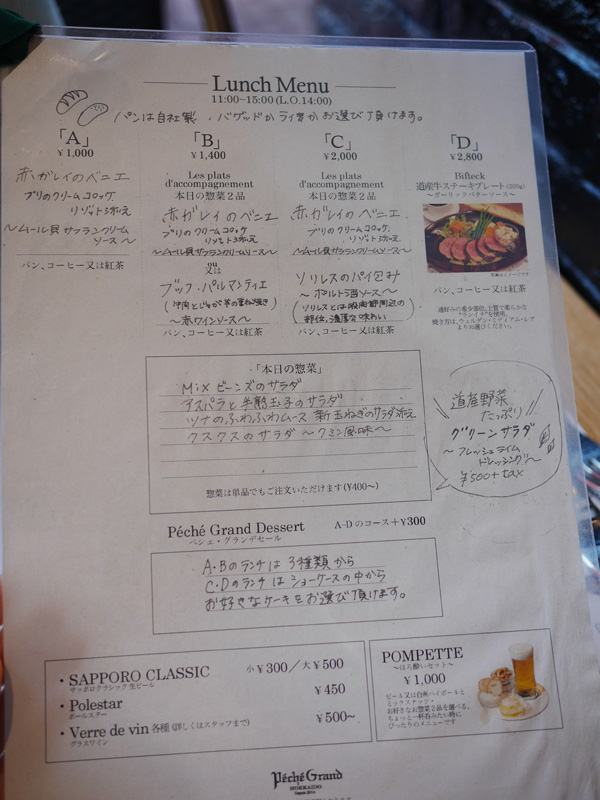 Lunch Menu
11:00~15:00 (L.O.14:00)
パンは自社製・バゲットかライ麦かお選び頂けます。
「A」
¥1,000
赤ガレイのベニエ
ブリのクリームコロッケ
リゾット添え
〜ムール貝サフランクリーム
ソース〜
パン、コーヒー又は紅茶
「B」
¥1,400
Les plats
d'accompagnement
本日の惣菜2品
赤ガレイのベニエ
ブリのクリームコロッケ
リゾット添え
〜ムール貝サフランクリームソース〜
ou
又は
ブッフ・パルマンティエ
(牛肉とじゃが芋の重ね焼き)
〜赤ワインソース〜
パン、コーヒー又は紅茶
「C」
¥2,000
Les plats
d'accompagnement
本日の惣菜2品
赤ガレイのベニエ
ブリのクリームコロッケ
リゾット添え
〜ムール貝サフランクリームソース〜
ソリレスのパイ包み
〜ポルト酒ソース〜
(ソリレスとは股関節周辺の
部位、濃厚な味わい)
パン、コーヒー又は紅茶
「D」
¥2,800
Bifteck
道産牛ステーキプレート(200g)
〜ガーリックバターソース〜
写真はイメージです
パン、コーヒー又は紅茶
"ランイチ"を使用。
焼き方は、ウェルダン・ミディアム・レア
よりお選びください。
「本日の惣菜」
Mixビーンズのサラダ
アスパラと半熟玉子のサラダ
ツナのふわふわムース 新玉ねぎのサラダ添え
クスクスのサラダ〜クミン風味〜
惣菜は単品でもご注文いただけます(¥400〜)
道産野菜
たっぷり
グリーンサラダ
〜フレッシュライム
ドレッシング〜
¥500+tax
Péché Grand Dessert A-Dのコース+¥300
ペシェ・グランデセール
A・Bのランチは3種類から
C・Dのランチはショーケースの中から
お好きなケーキをお選び頂けます。
・SAPPORO CLASSIC 小¥300/大¥500
サッポロクラシック 生ビール
・Polestar ¥450
ポールスター
・Verre de vin 各種(詳しくはスタッフまで) ¥500~
グラスワイン
POMPETTE
〜ほろ酔いセット〜
¥1,000
ビール又は白州ハイボールと
ミックスナッツ・
お好きなお惣菜2品を選べる、
ちょっと一杯呑みたい時に
ぴったりのメニューです
Péché Grand
HOKKAIDO
Depuis 2014